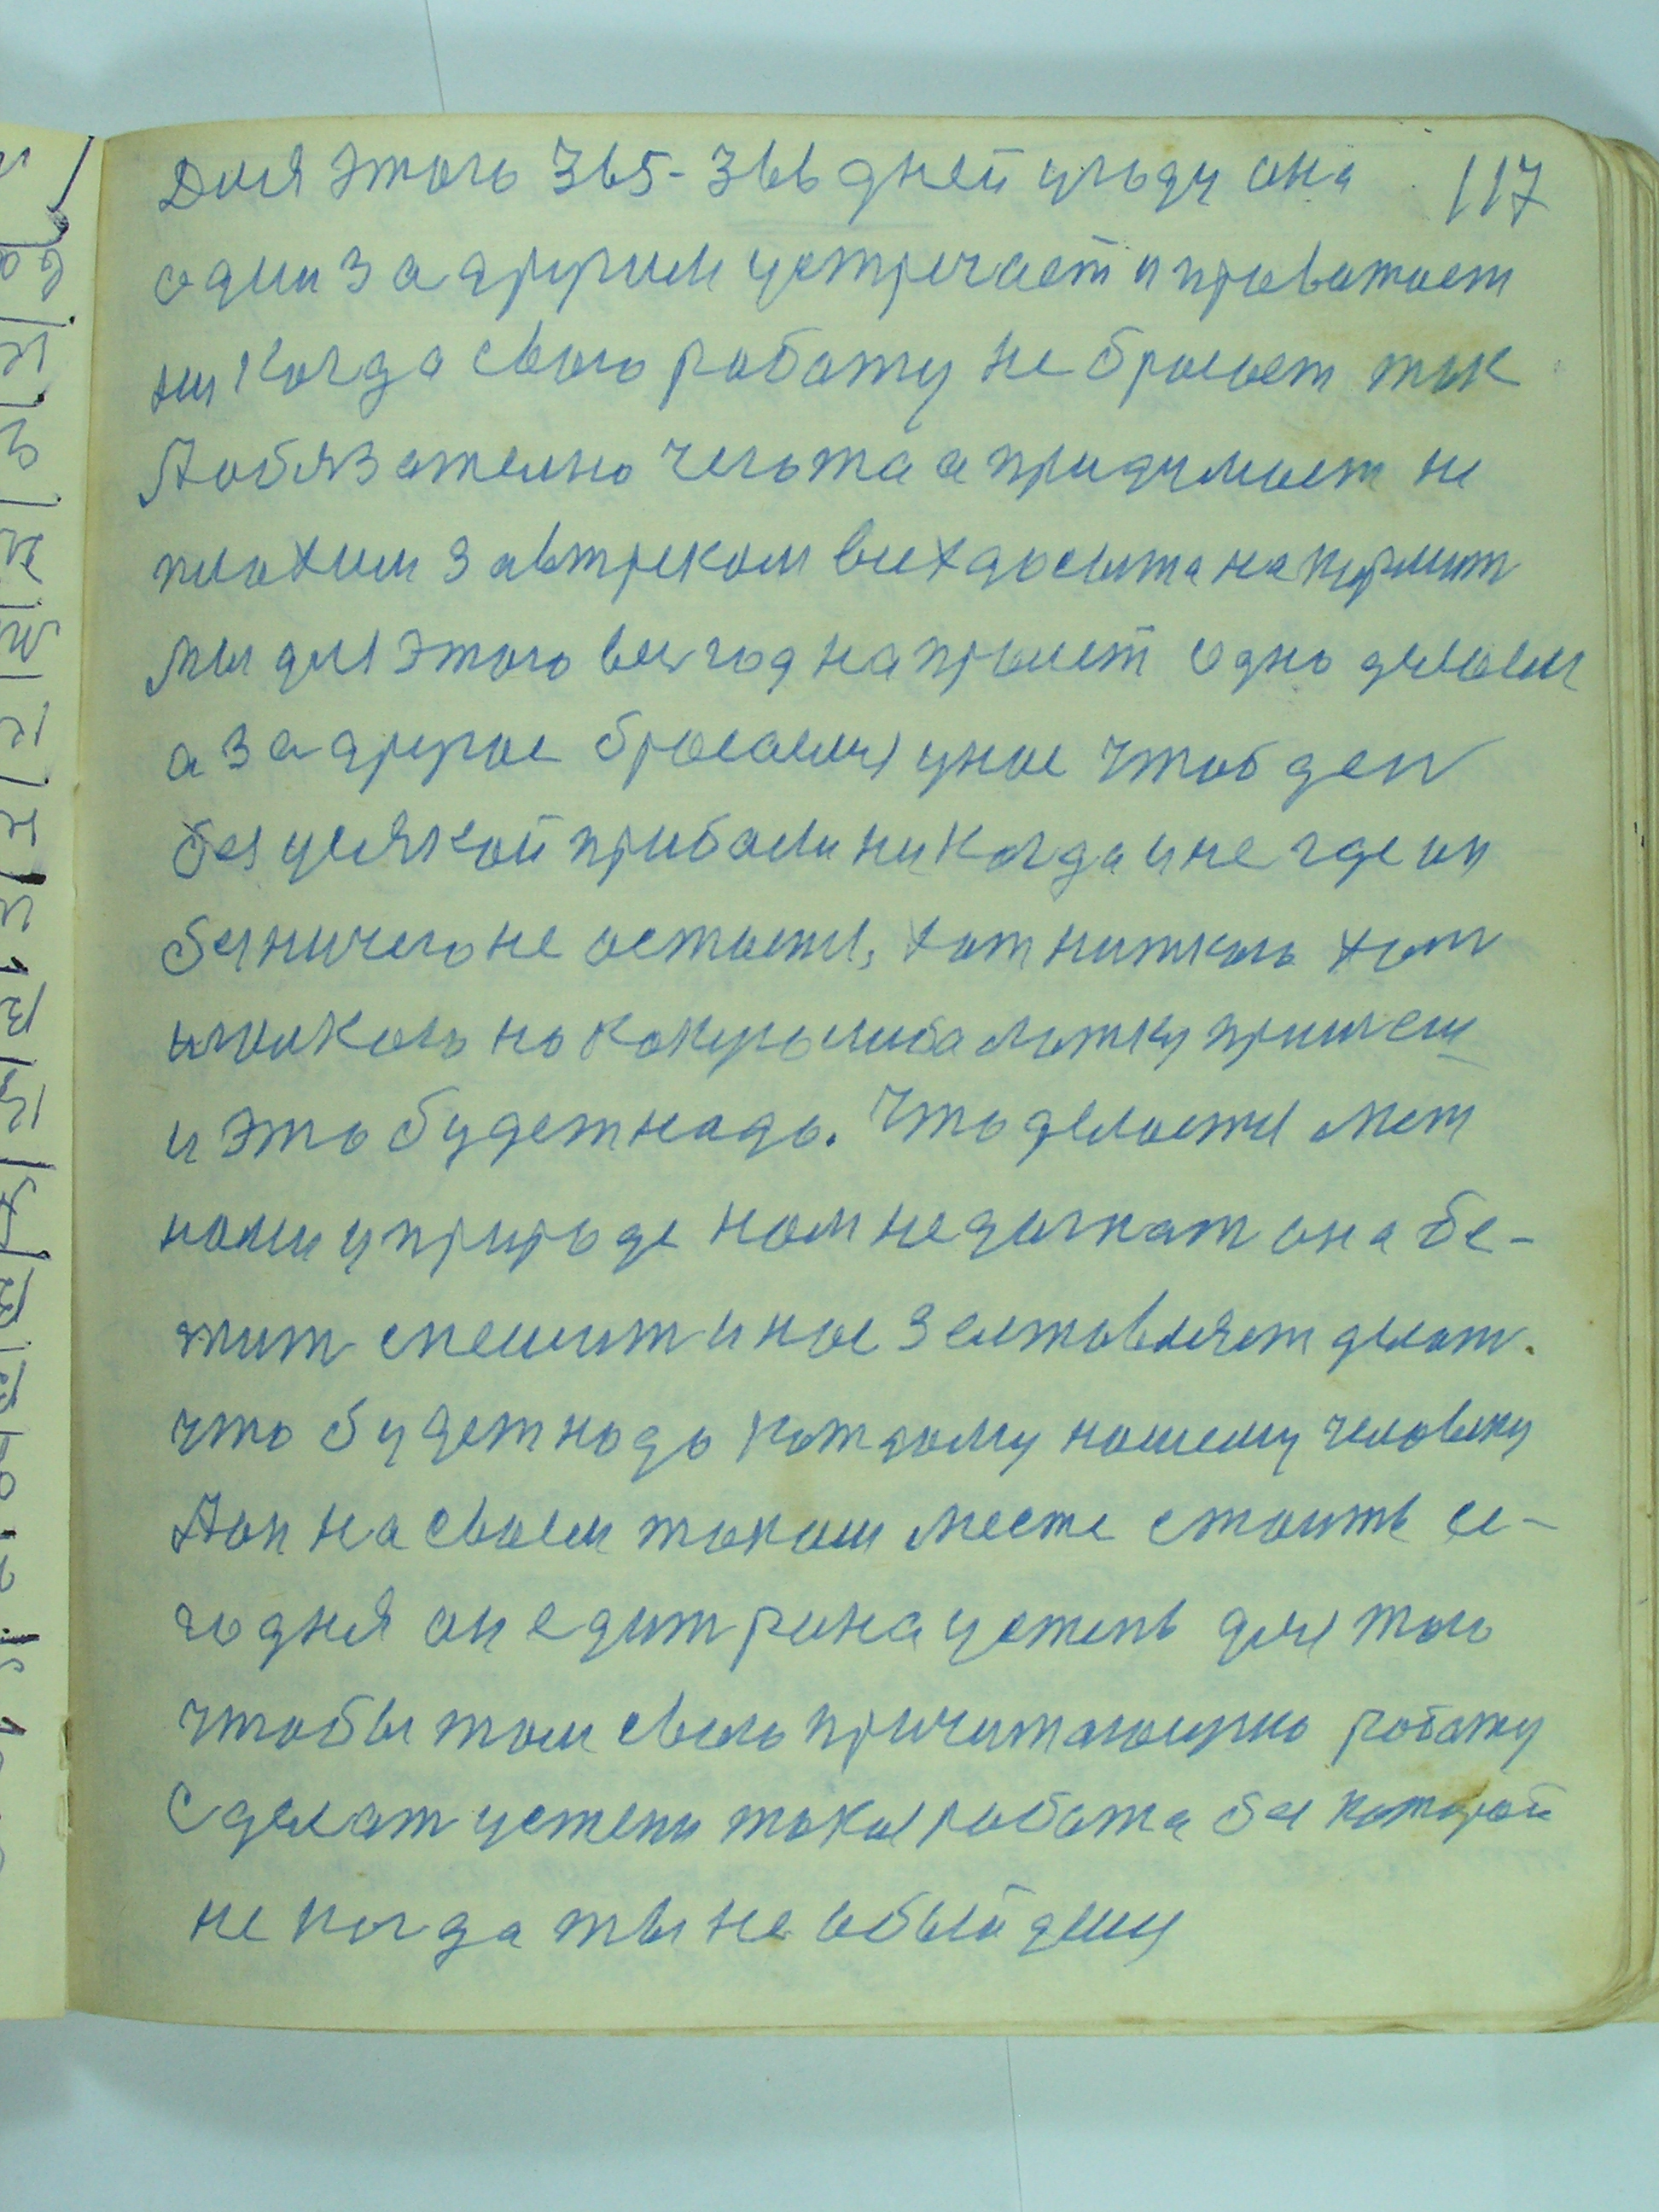 Для этого 365-366 дней угоду она 117
один за другим устречает и провожает
ни когда свою работу не бросает так
А обязателно чего та а придумает не
плохим завтреком всех досыта накормит
мы для этого весь год напролет одно делаем
а за другое бросаемся унас чтоб ден
без усякой прибали ни когда и не где он
без ничего не остается, хот ниткою хот
иголкою на какую либа латку пришеш
и это будет надо. Что делается мет
нами уприроде нам не дагнат она бе-
жит спешит и нас заставляет делат.
что будет надо каждому нашему человеку
А он на своем таком месте стоить се-
годня он едит рана устепь для того
чтобы там свою причитающую работу
сделат устепи такая работа без каторой
не когда ты не обыйдеш